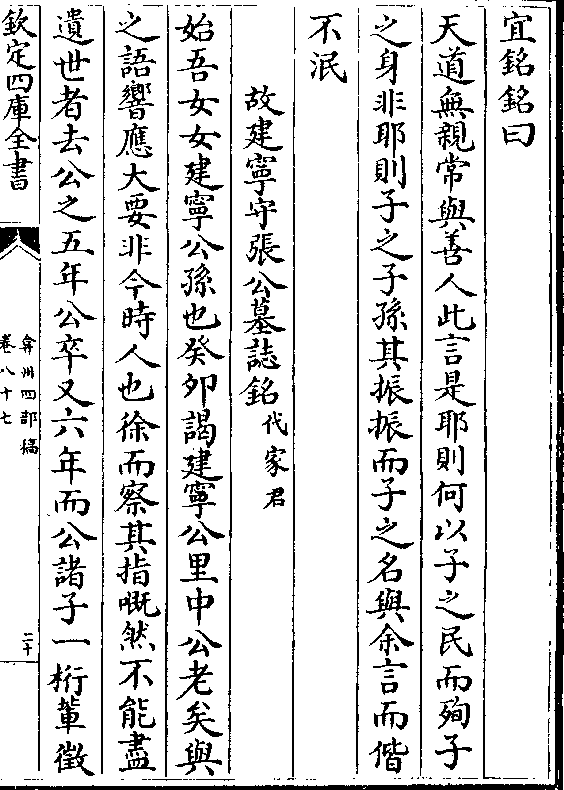 宜銘銘曰
天道無親常與善人此言是耶則何以子之民而殉子
之身非耶則子之子孫其振振而子之名與余言而偕
不泯
故建寧守張公墓誌銘代家君
始吾女女建寧公孫也癸夘謁建寧公里中公老矣與
之語響應大要非今時人也徐而察其指嘅然不能盡
遺世者去公之五年公卒又六年而公諸子一桁輩徵
欽定四庫全書
弇州四部稿
卷八十七
二十